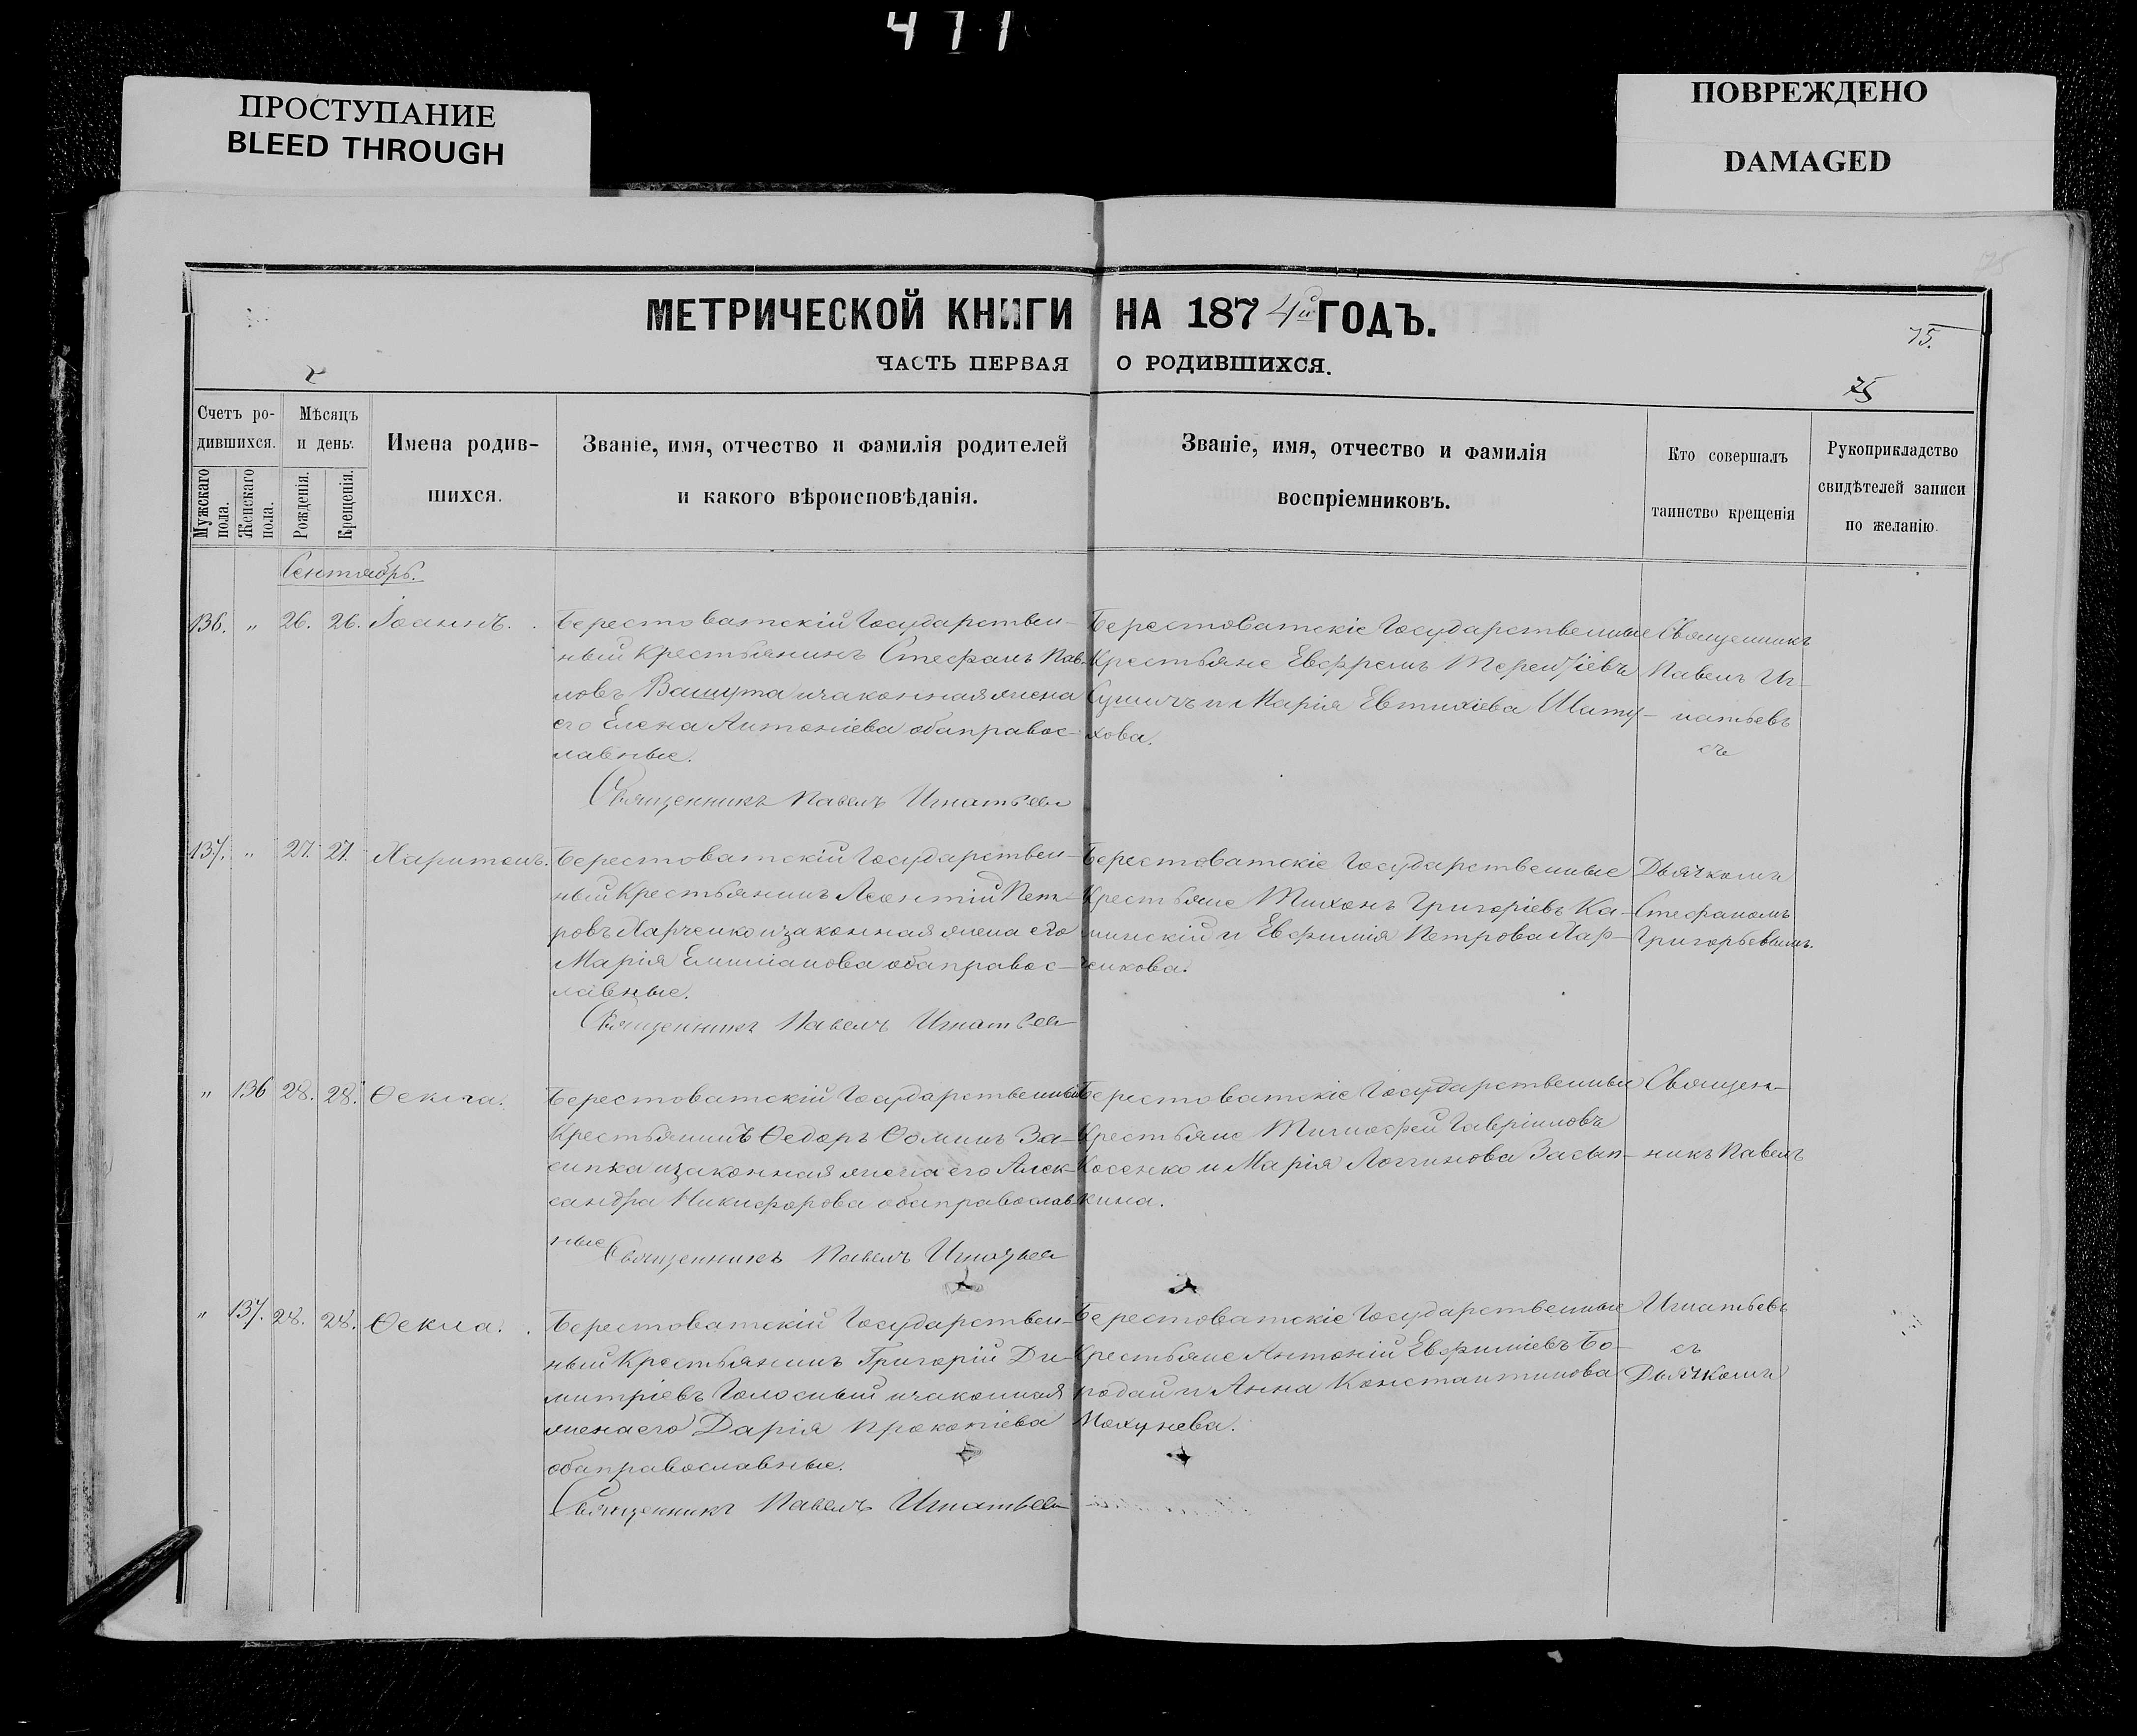 471
ПРОСТУПАНИЕ
BLEED THROUGH
ПОВРЕЖДЕНО
DAMAGED
МЕТРИЧЕСКОЙ КНИГИ НА 1874й ГОДЪ.
75.
ЧАСТЬ ПЕРВАЯ О РОДИВШИХСЯ.
75
Счетъ ро-
дившихся.
Мужскаго пола.
Женскаго пола.
Мѣсяцъ
и день.
Рожденія.
Крещенія.
Имена родив-
шихся.
Званіе, имя, отчество и фамилія родителей
и какого вѣроисповѣданія.
Званіе, имя, отчество и фамилія
воспріемниковъ.
Кто совершалъ
таинство крещенія
Рукоприкладство
свидѣтелей записи
по желанію.
Сентябрь.
136. " 26. 26. Іоаннъ.
Берестоватскій Государствен-
ный Крестьянинъ Стефанъ Пав-
ловъ Вашута и законная жена
его Елена Антоніева оба правос-
лавные.
Священникъ Павелъ Игнатьевъ
Берестоватскіе Государственные
Крестьяне Евфремъ Терентіевъ
и Марія Евтихіева Шату-
хова.
Священникъ
Павелъ Иг-
натьевъ
съ
137. " 27. 27. Харитонъ.
Берестоватскій Государствен-
ный Крестьянинъ Леонтій Пет-
ровъ Харченко и законная жена его
Марія Емиліанова оба правос-
лавные.
Священникъ Павелъ Игнатьевъ
Берестоватскіе Государственные
Крестьяне Тихонъ Григоріевъ Ка-
минскій и Евфимія Петрова Хар-
ченкова.
Дьячкомъ
Стефаномъ
Григорьевымъ
" 136 28. 28. Ѳекла.
Берестоватскій Государственный
Крестьянинъ Ѳедоръ Ѳоминъ За-
сипка и законная жена его Алек-
сандра Никифорова оба православ-
ные
Священникъ Павелъ Игнатьевъ
Берестоватскіе Государственные
Крестьяне Тимофей Гавріиловъ
Косенко и Марія Логгинова Засып-
кина.
Священ-
никъ Павелъ
" 137. 28. 28. Ѳекла.
Берестоватскій Государствен-
ный Крестьянинъ Григорій Ди-
митріевъ Голосный и законная
жена его Дарія Прокопіева
оба православные.
Священникъ Павелъ Игнатьевъ
Берестоватскіе Государственные
Крестьяне Антоній Евфиміевъ Бо-
родай и Анна Константинова
Мохунева.
Игнатьевъ
съ
Дьячкомъ